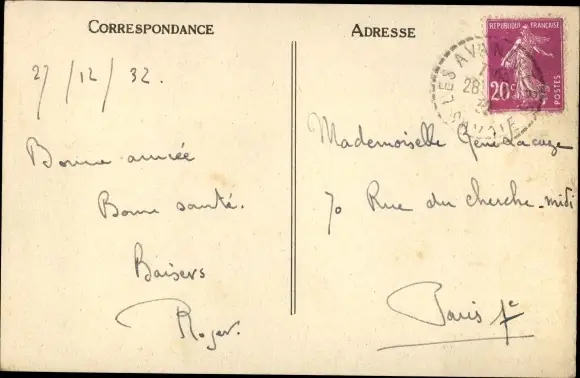 CORRESPONDANCE
27/12/32.
Bonne année
Bonne santé.
Baisers
Roger.
ADRESSE
REPUBLIQUE FRANÇAISE
20c
POSTES
LES AVAN
28
SAVOIE
Mademoiselle
70 Rue du cherche-midi
Paris